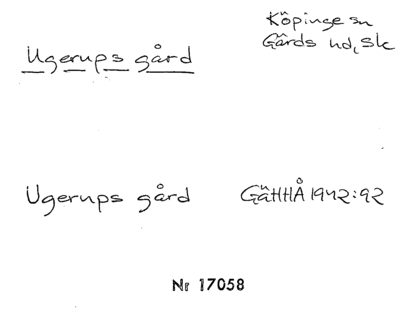 Ugerups gård
Köpinge sn
Gärds hd, Sk
Ugerups gård
GäHHÅ 1942:92
Nr 17058